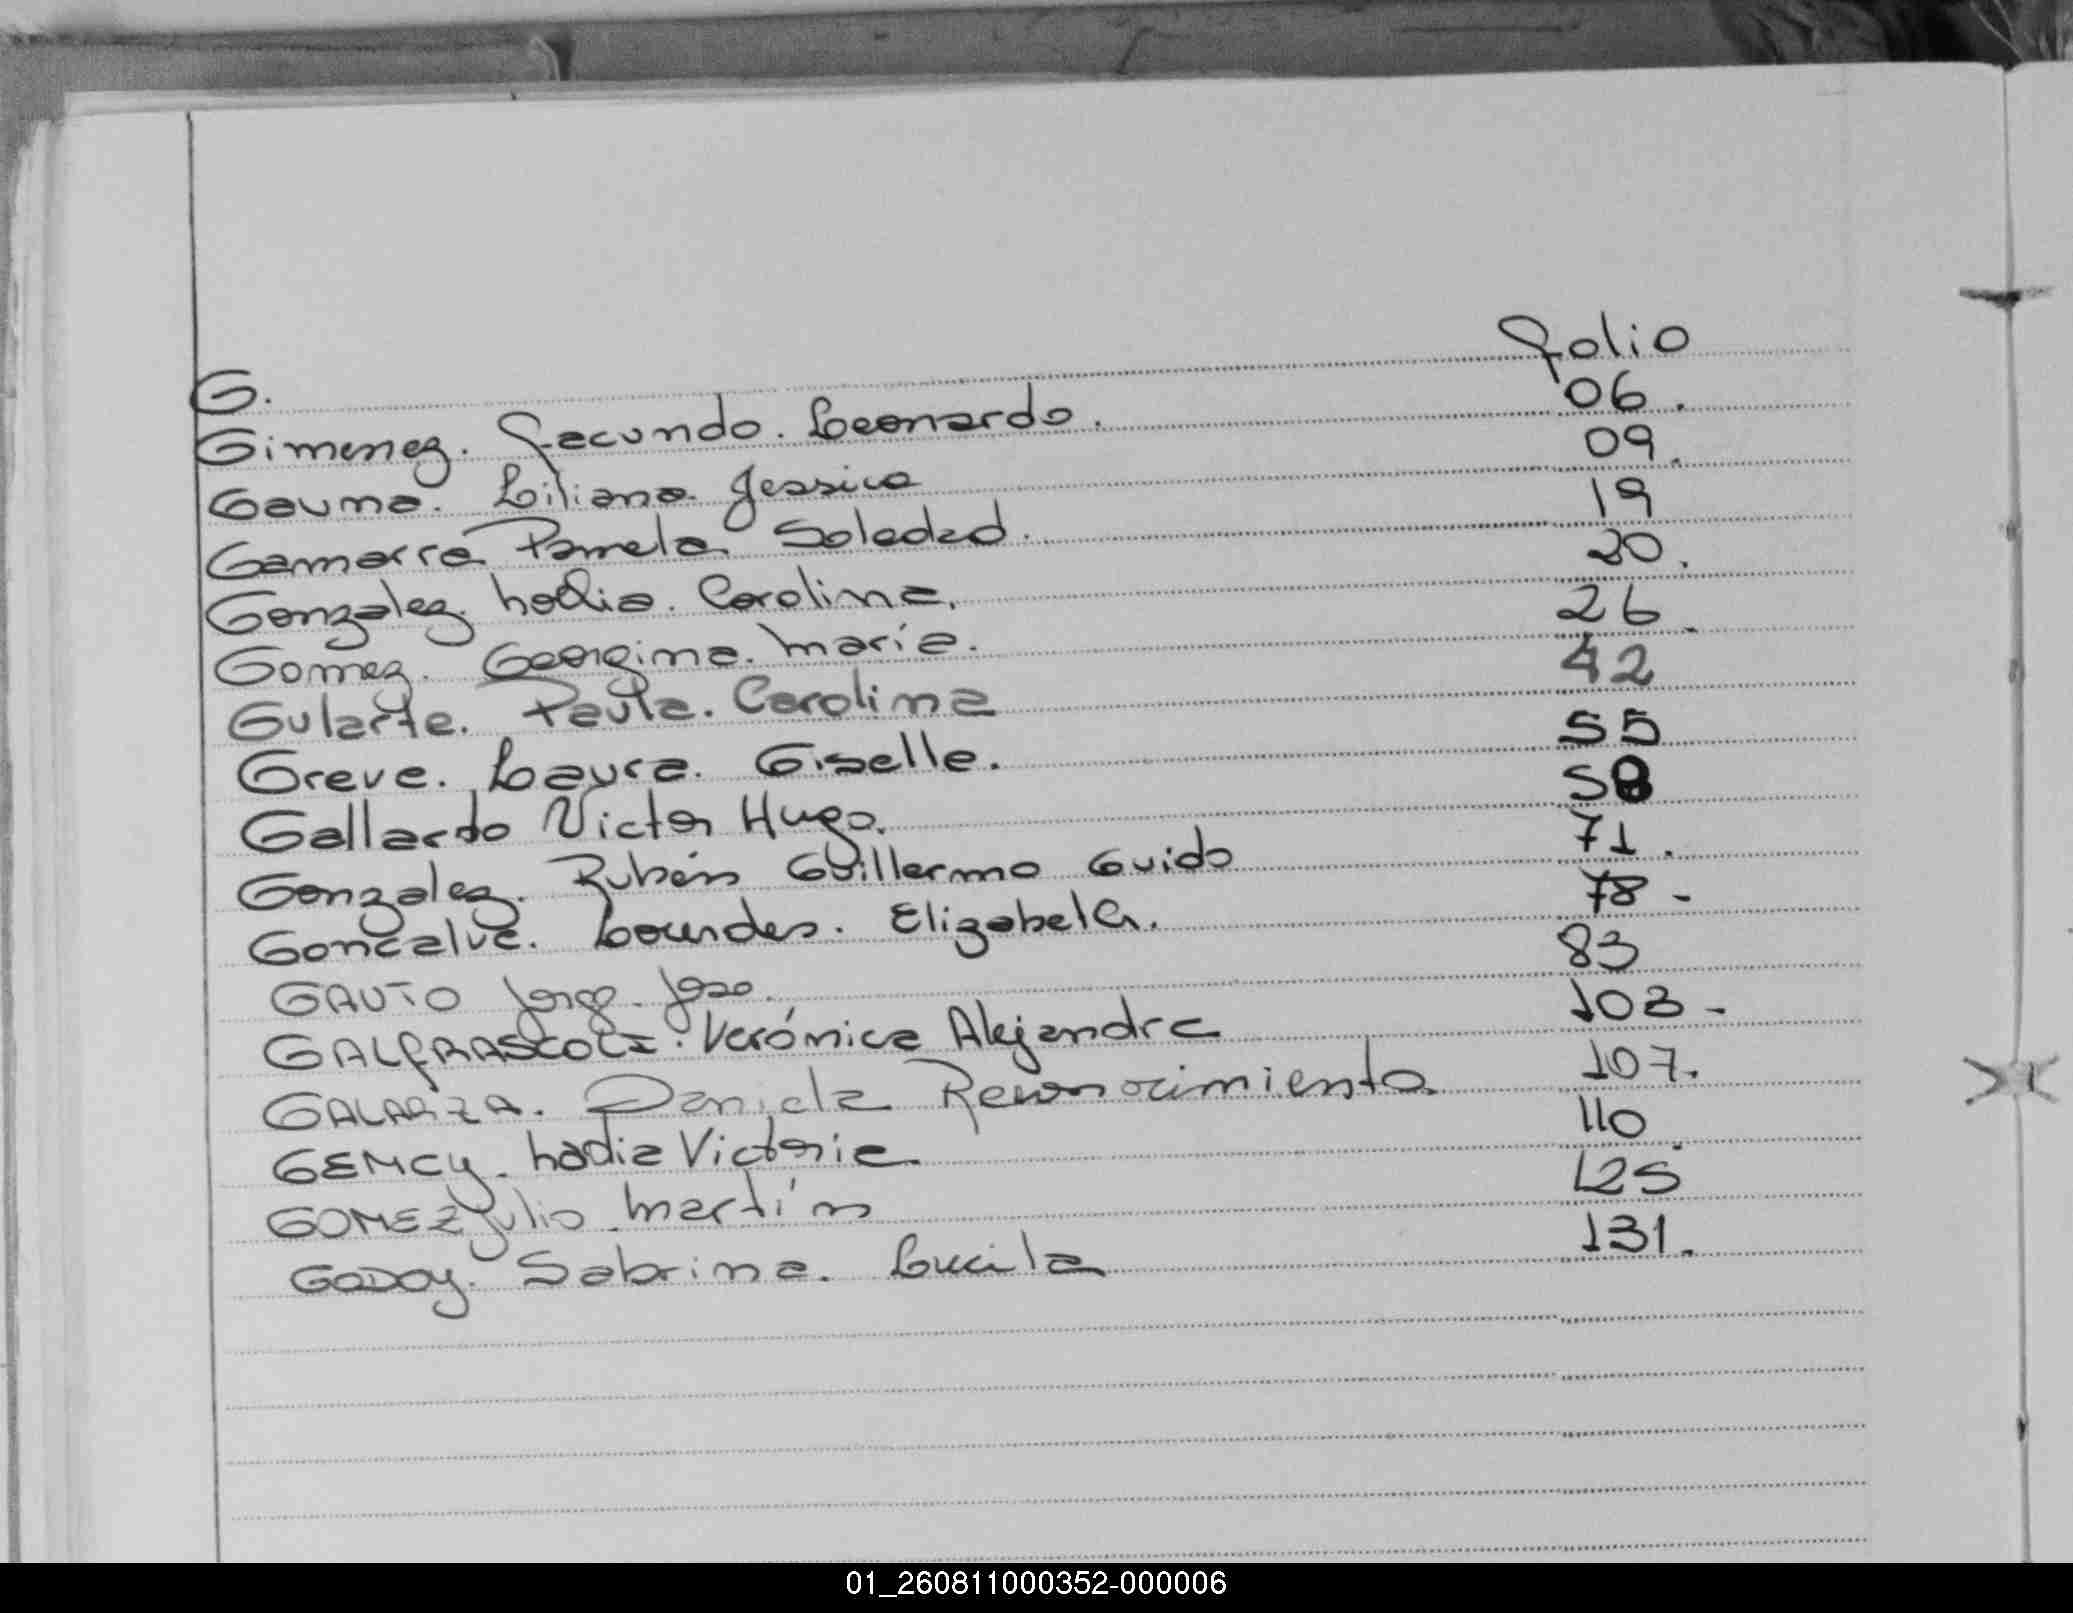 Folio
G.
Gimenez. Facundo. Leonardo. 06.
Gauna. Liliana Jessica 09.
Gamarra Pamela Soledad. 19
Gonzalez. Nadia. Carolina. 20.
Gomez. Georgina. Maria. 26.
Gularte. Paula. Carolina 42
Greve. Laura. Giselle. 55
Gallardo Victor Hugo. 58
Gonzalez. Rubén Guillermo Guido 71.
Goncalve. Lourdes. Elizabeth. 78-
GAUTO Jorge. Jose. 83
GALFRASCOLI. Verónica Alejandra 103-
GALARZA. Daniela Reconocimiento 107.
GEMCy. Nadia Victoria 110.
GOMEZ Julio Martín 125
GODOy. Sabrina. Lucila 131.
01_260811000352-000006